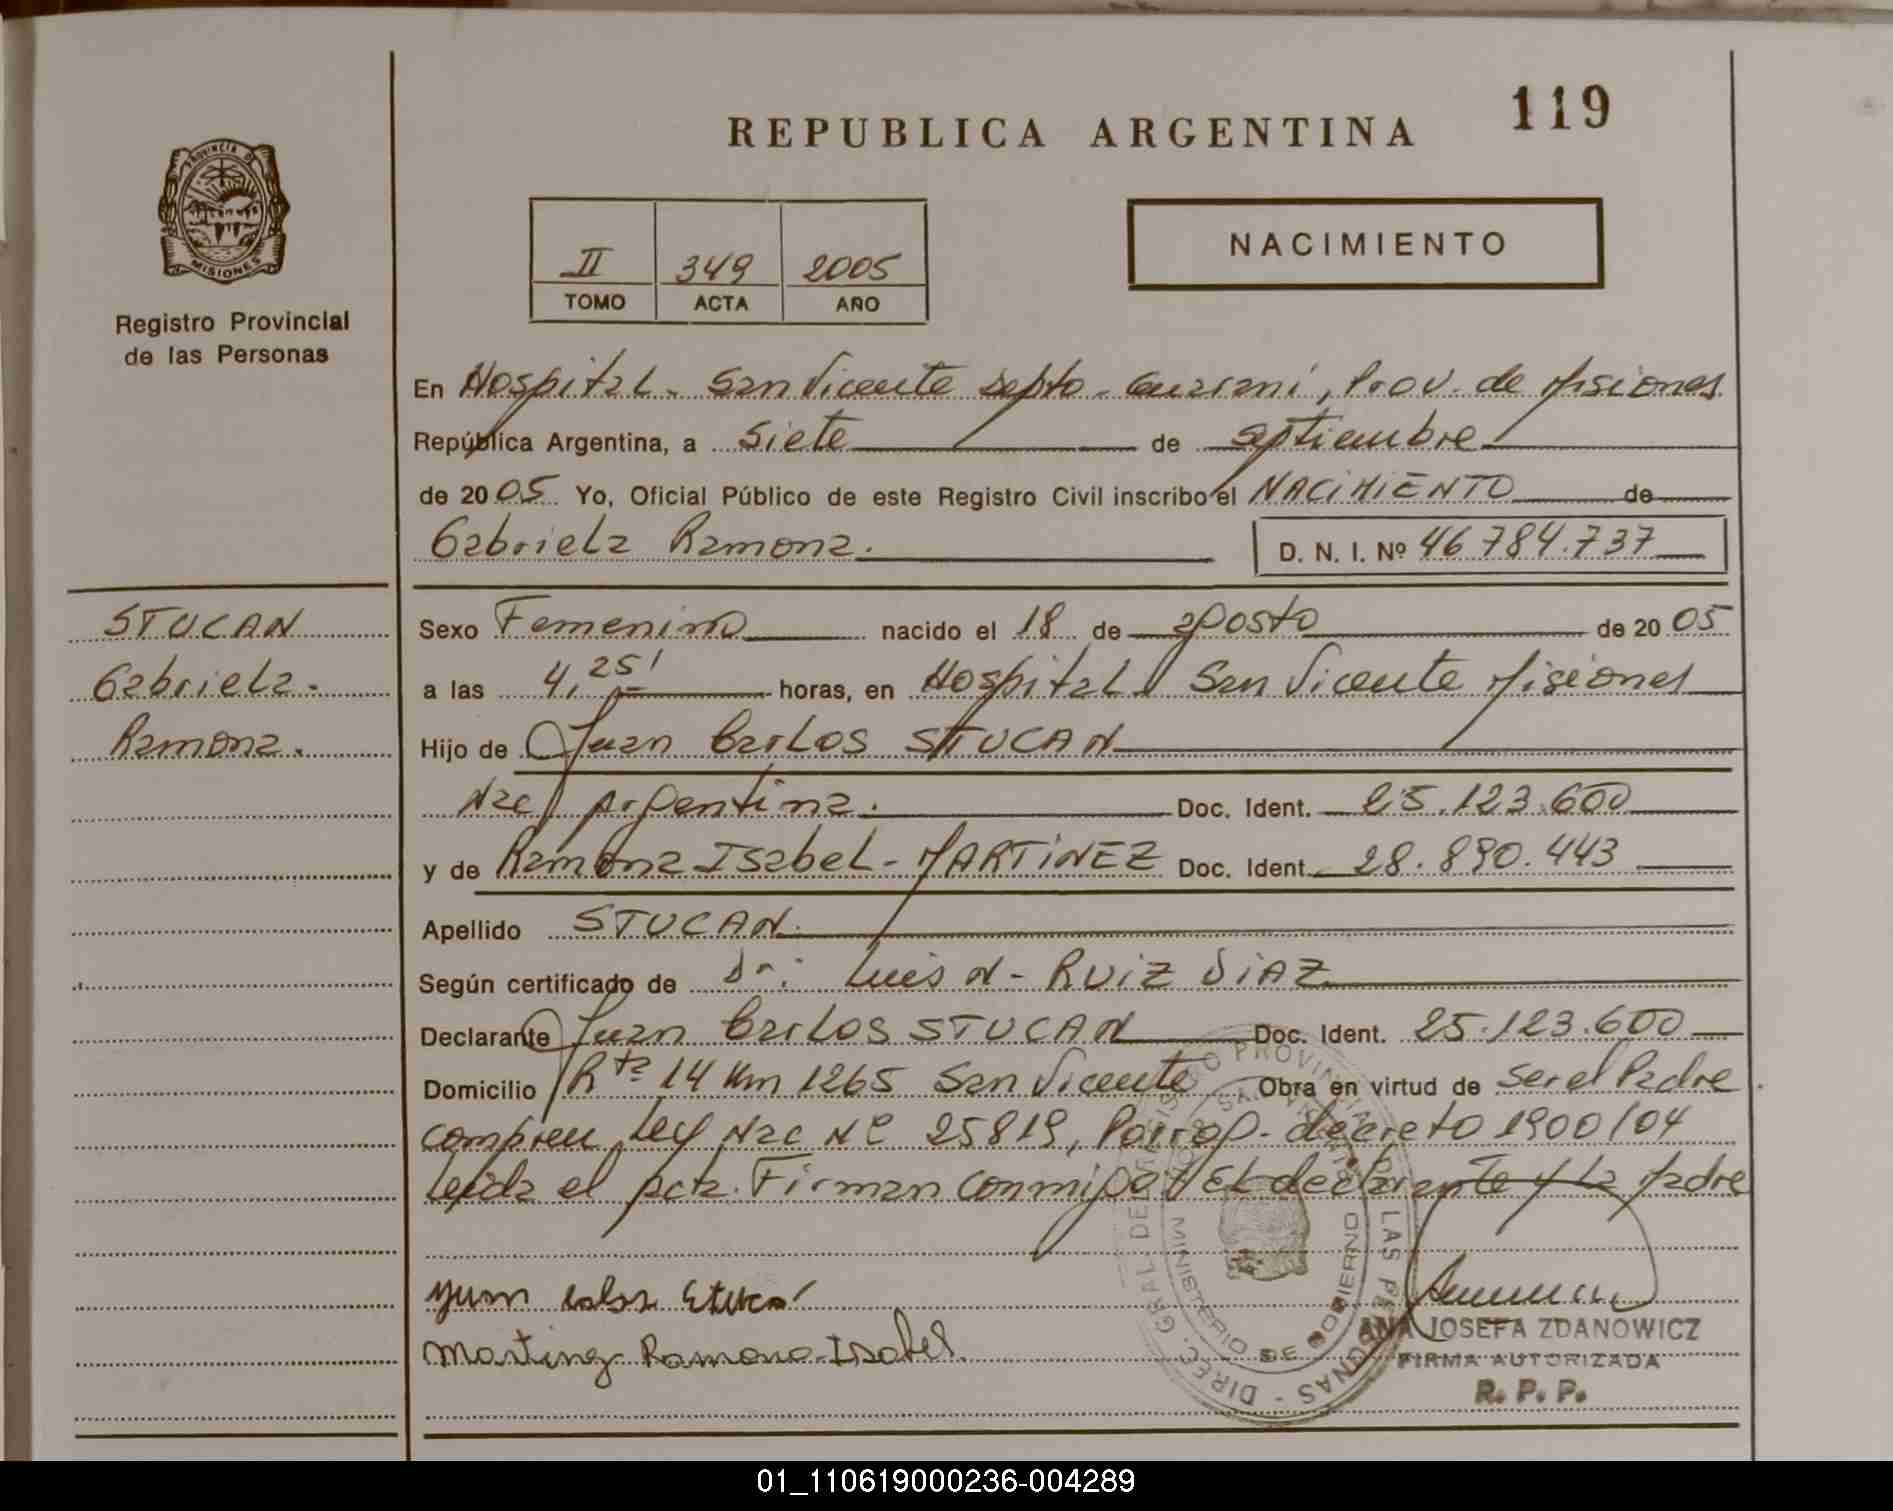 REPUBLICA ARGENTINA
119
PROVINCIA DE
MISIONES
Registro Provincial
de las Personas
II 349 2005
TOMO ACTA AÑO
NACIMIENTO
En Hospital - San Vicente Depto - Guarani, Prov. de Misiones
República Argentina, a Siete de Septiembre
de 20 05 Yo, Oficial Público de este Registro Civil inscribo el NACIMIENTO de
Gabriela Ramona.
D. N. I. Nº 46.784.737
STUCAN
Gabriela.
Ramona.
Sexo Femenino nacido el 18 de agosto de 20 05
a las 4,25' horas, en Hospital San Vicente Misiones
Hijo de Juan Carlos STUCAN
Nac Argentina. Doc. Ident. 25.123.600
y de Ramona Isabel - MARTINEZ Doc. Ident. 28.890.443
Apellido STUCAN.
Según certificado de Dr: Luis N - RUIZ DIAZ
Declarante Juan Carlos STUCAN Doc. Ident. 25.123.600
Domicilio Rta 14 Km 1265 San Vicente Obra en virtud de ser el Padre
Ley Nac Nº 25819, Porrog. decreto 1900/04
Leida el acta. Firman conmigo El declarante y La Madre
Martinez Ramona Isabel
DIREC. GRAL. DEL REGISTRO PROVINCIAL DE LAS PERSONAS
MINISTERIO DE GOBIERNO
ANA JOSEFA ZDANOWICZ
FIRMA AUTORIZADA
R. P. P.
01_110619000236-004289